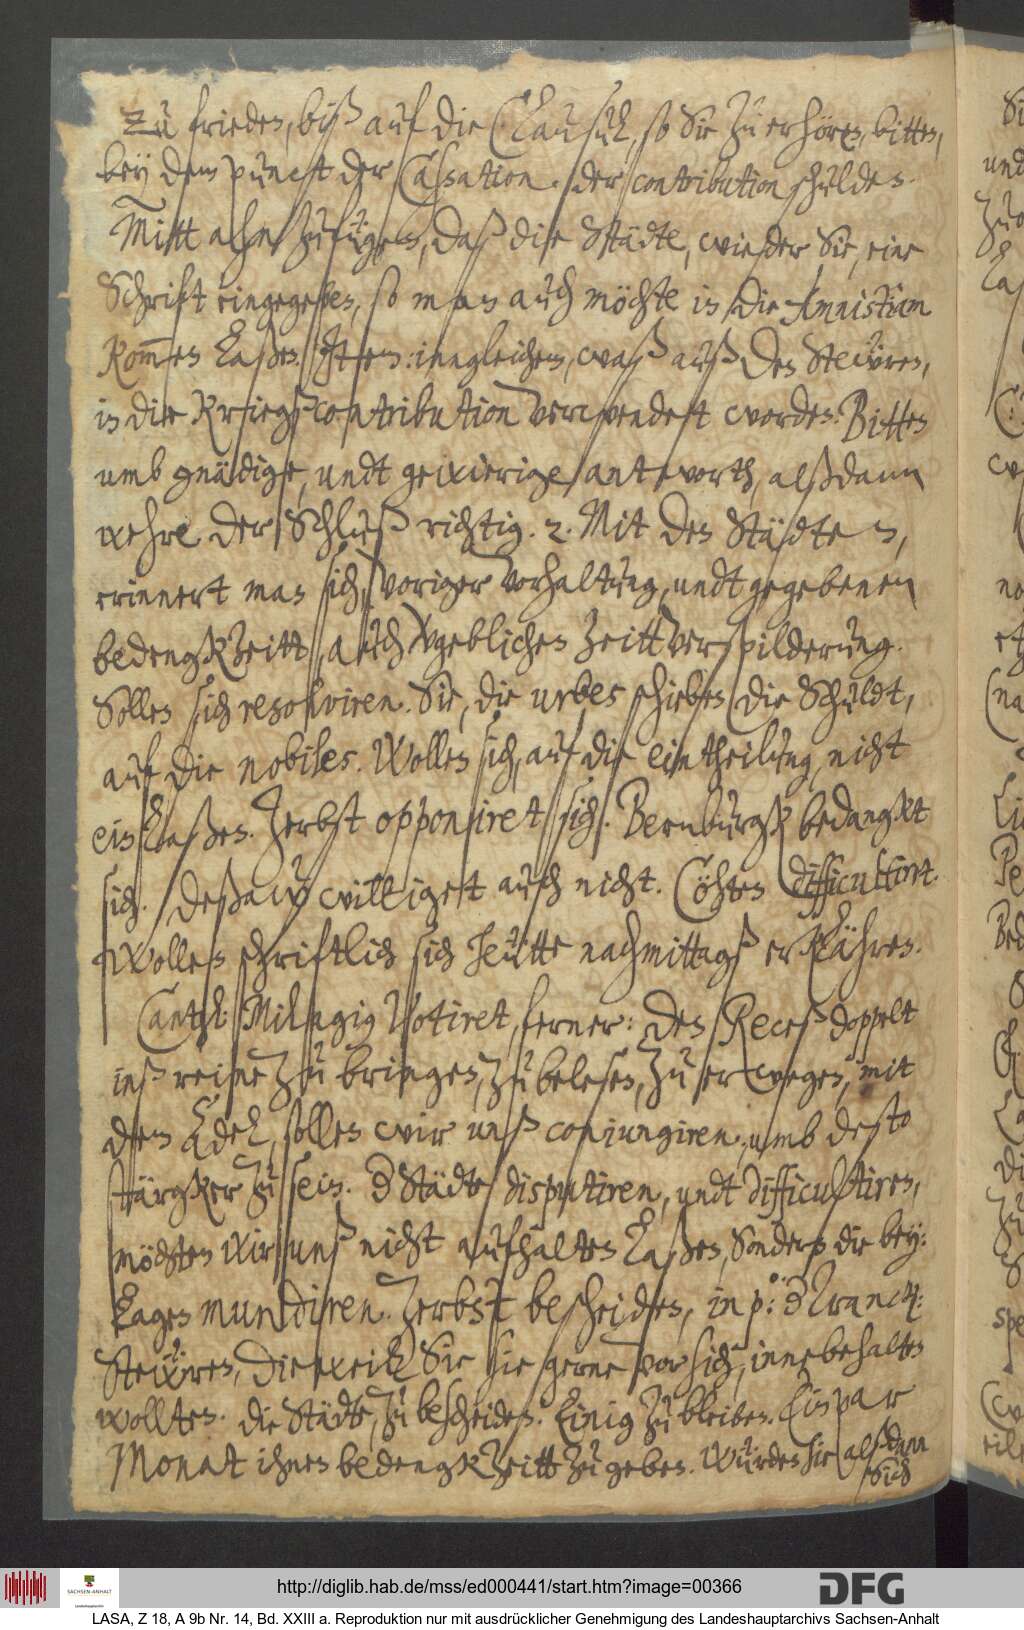 Zu frieden, biß auf die Clausul, so Sie zu erhören, bitten,
bey dem punct der Cassation der contribution schulden.
Mitt ahn zufügen, daß die Städte, wieder Sie, eine
Schrift eingegeben, so man auch möchte in die Amnistiam
kom̄en laßen. Item: inngleichen, waß auß den Steüren,
in die Kriegß contribution verwendet worden. Bitten
umb gnädige, undt geixierige antworth, alßdann
wehre der Schluß richtig. 2. Mit den Städten,
erinnert man sich, voriger vorhaltung, undt gegebenen
bedengkzeitt, auch vgeblichen zeittverspilderung.
Sollen sich resolviren. Sie, die urbes schieben die Schuldt,
auf die nobiles. Wollen sich, auf die eintheilung, nicht
ein laßen. Zerbst opponiret sich. Bernburgk bedangkt
sich. Deßaw williget auch nicht. Cöhten difficultirt.
Wollen schriftlich sich heütte nachmittagß erklähren.
Cantzl: Milagig Votiret, ferner: den Receß doppelt
inß reine zu bringen, zu belesen, zu erwegen, mit
dem Adel, sollen wir unß conjungiren, umb desto
stärgker zu sein. d Städte disputiren, undt difficultiren,
möchten wir unß nicht aufhalten laßen, Sondern die bey:
lagen mundiren. Zerbst bescheiden, in p: d Tranck:
Steüren, dieweil Sie sie gerne vor sich, innebehalten
wollten. die Städte, zu bescheiden. Einig zu bleiben. Ein par
Monat ihnen bedengkzeitt zu geben. Würden sie alßdann
sich
http://diglib.hab.de/mss/ed000441/start.htm?image=00366
DFG
SACHSEN-ANHALT
LASA, Z 18, A 9b Nr. 14, Bd. XXIII a. Reproduktion nur mit ausdrücklicher Genehmigung des Landeshauptarchivs Sachsen-Anhalt